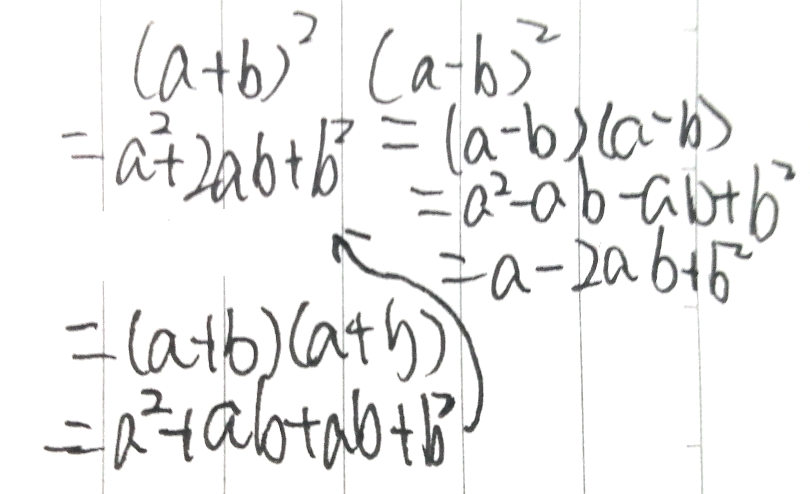 (a+b)²
=a²+2ab+b²
=(a+b)(a+b)
=a²+ab+ab+b²
(a-b)²
=(a-b)(a-b)
=a²-ab-ab+b²
=a-2ab+b²